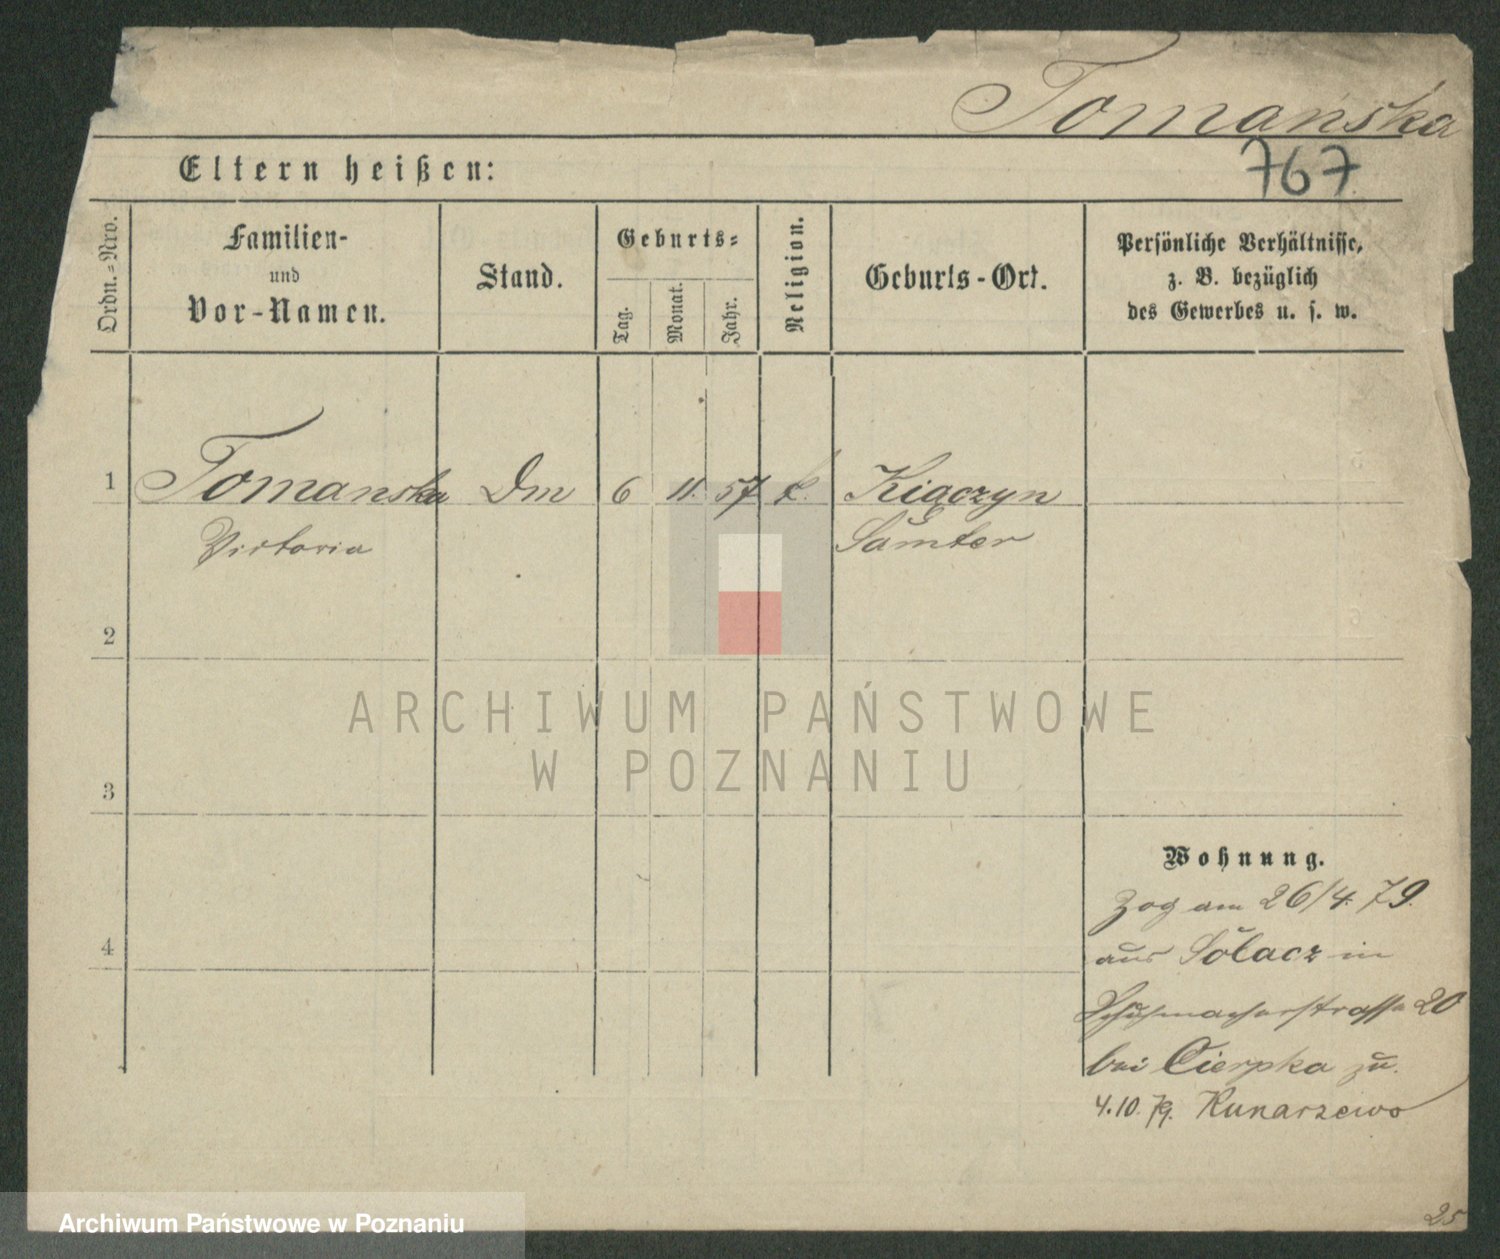 Tomańska
767
Eltern heißen:
Ordn.-Nro.
Familien-
und
Vor-Namen.
Stand.
Geburts-
Tag.
Monat.
Jahr.
Religion.
Geburts-Ort.
Persönliche Verhältnisse,
z. B. bezüglich
des Gewerbes u. s. w.
1 Tomanska Dm 6 11. 57 k. Kiączyn
Victoria Samter
2
ARCHIWUM PAŃSTWOWE
W POZNANIU
3
Wohnung.
Zog am 26/4. 79.
aus Solacz in
4
Schuhmacherstrasse 20
bei Cierpka zu.
4.10.79. Kunarzewo
Archiwum Państwowe w Poznaniu
25